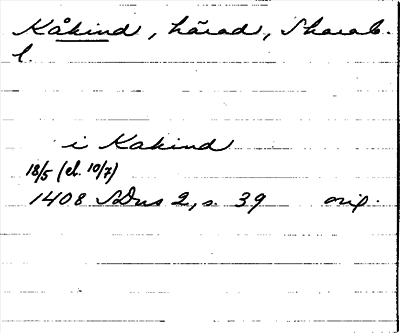 Kåkind, härad, Skarab.
l.
i Kakind
18/5 (el. 10/7)
1408 SDns 2, s. 39 orig.